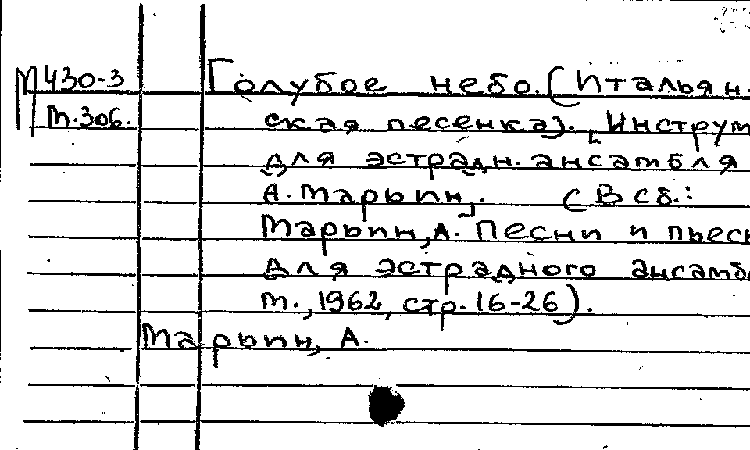 М430-3 Голубое небо. (Итальян.
т.306. ская песенка). Инструм
для эстрадн. ансамбля
А. Марьин,. (В сб.:
Марьин, А. Песни и пьес
для эстрадного ансамб
М., 1962, стр. 16-26).
Марьин, А.